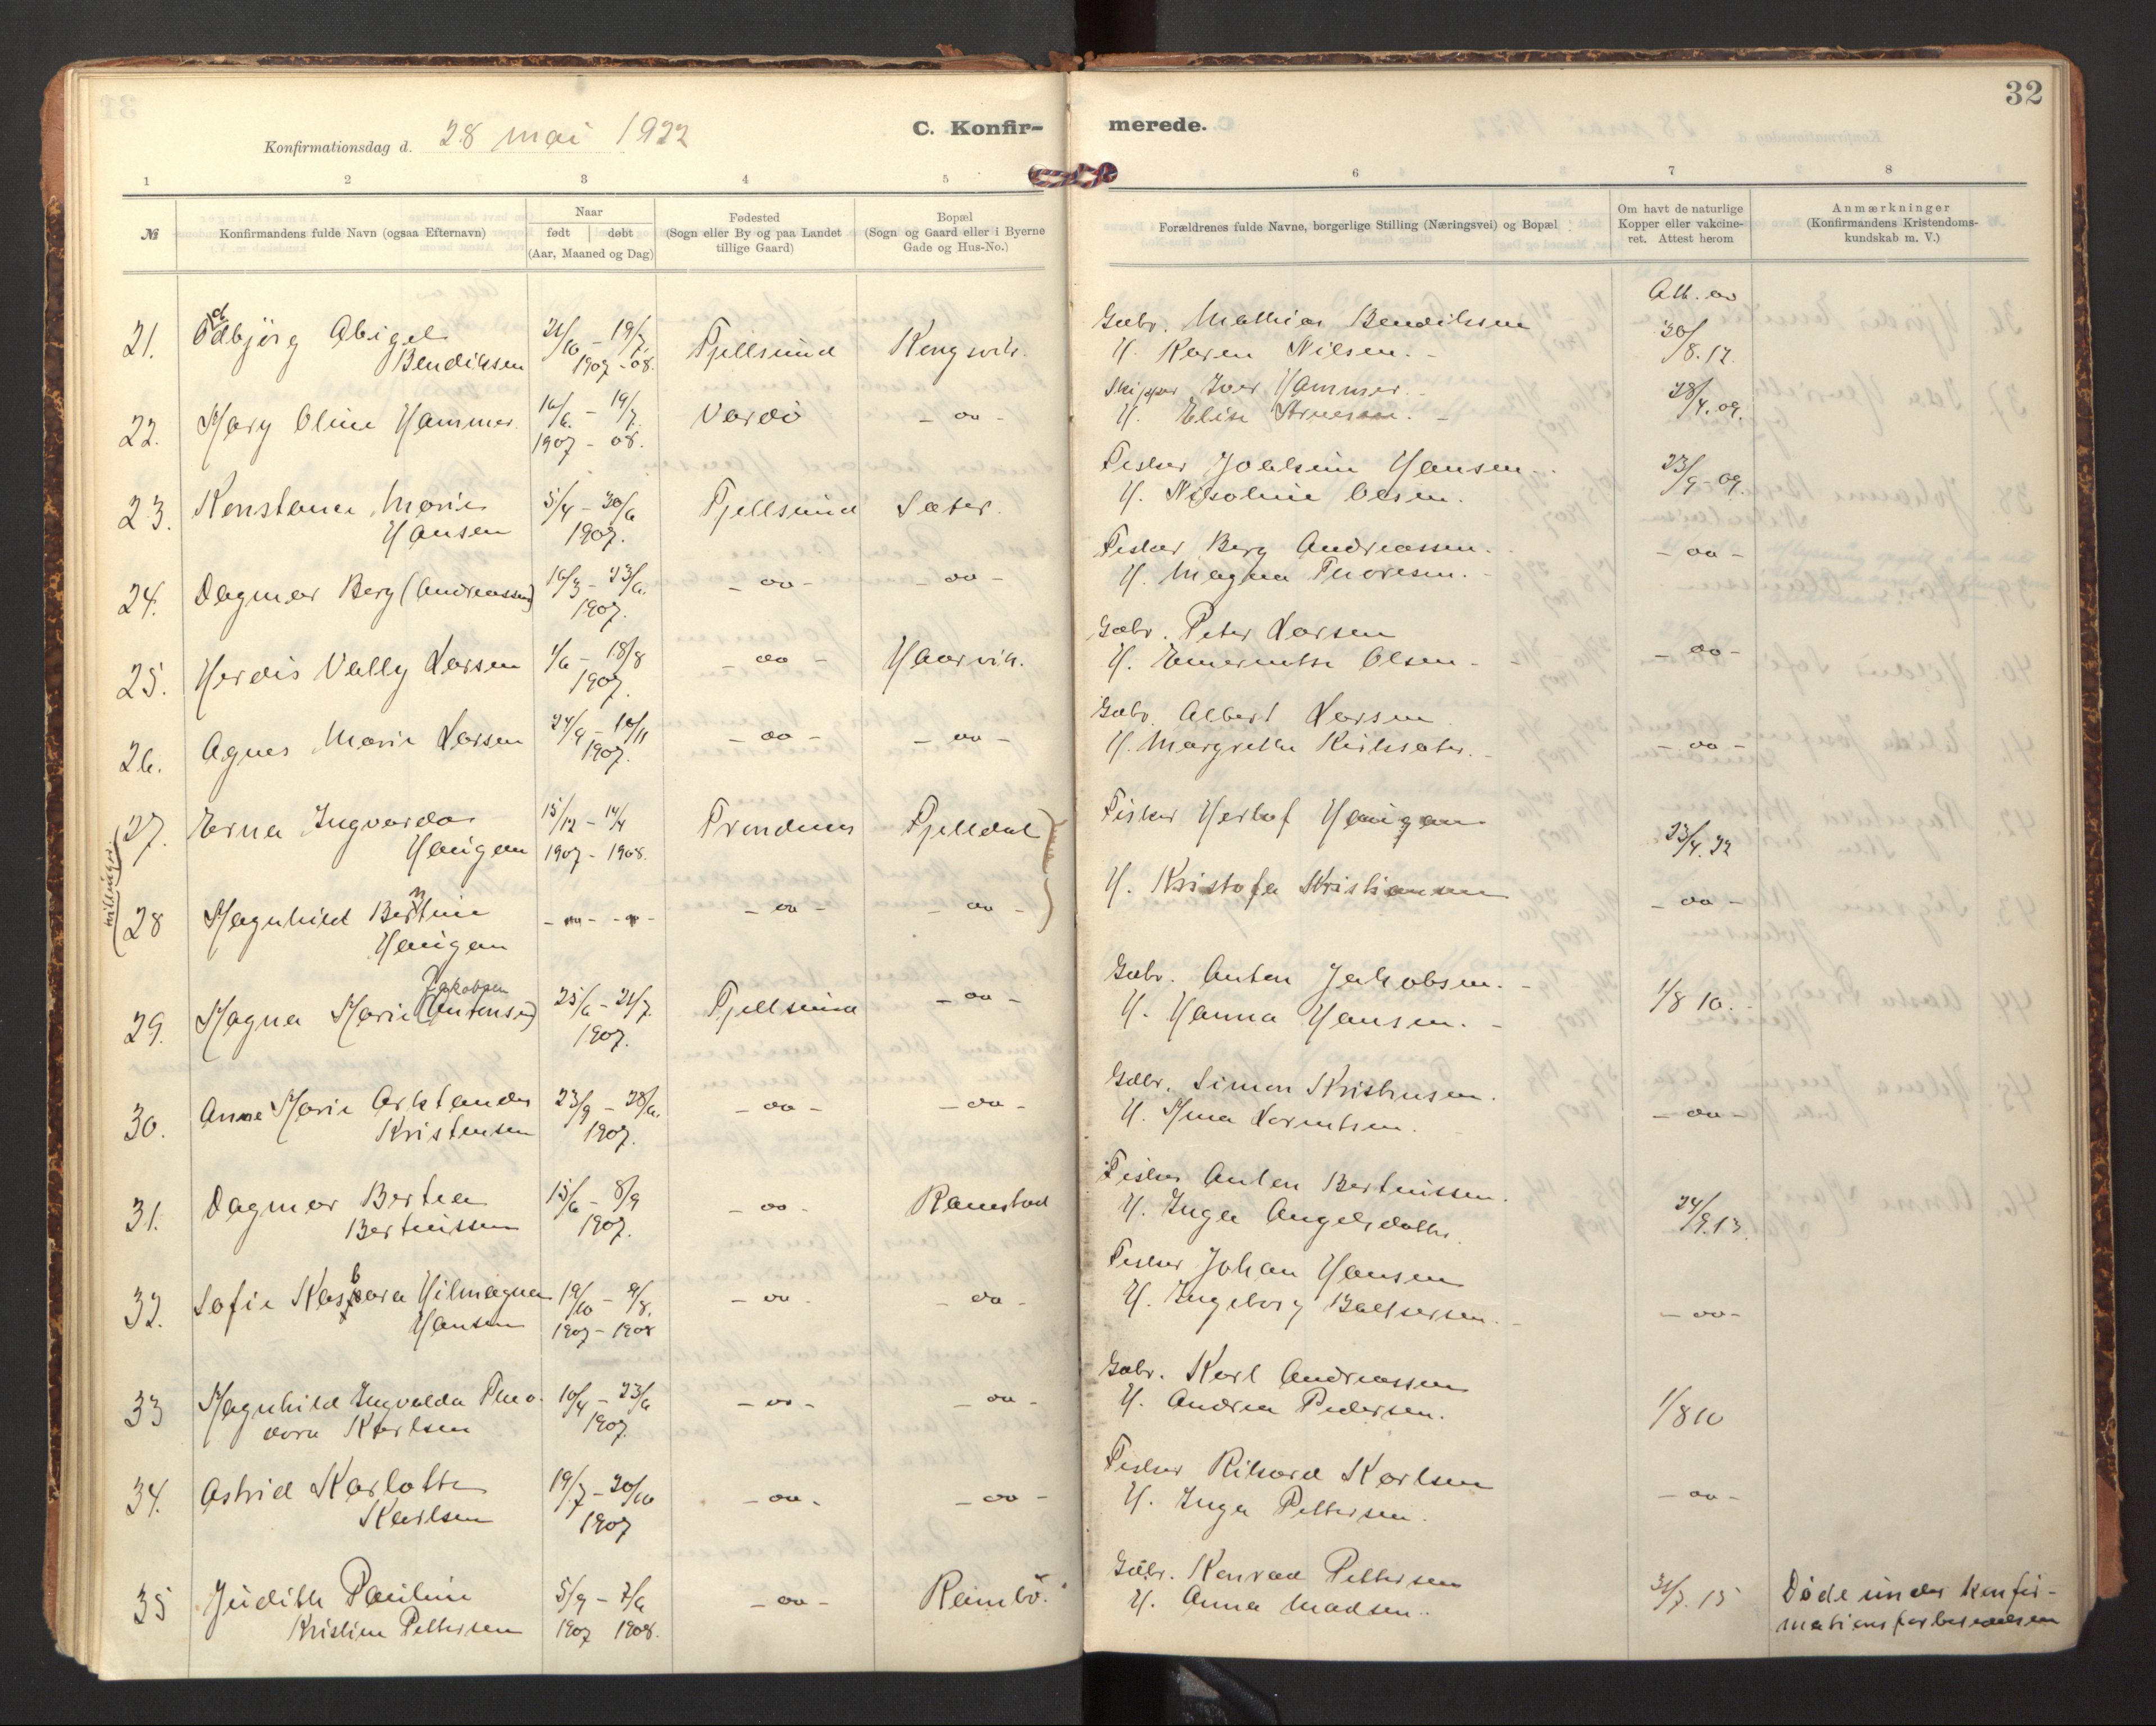 32
C. Konfir-
merede.
Konfirmationsdag d. 28 mai 1922
1 2 3 4 5 6 7 8
№
Konfirmandens fulde Navn (ogsaa Efternavn)
Naar
født | døbt
(Aar, Maaned og Dag)
Fødested
(Sogn eller By og paa Landet
tillige Gaard)
Bopæl
(Sogn og Gaard eller i Byerne
Gade og Hus-No.)
Forældrenes fulde Navne, borgerlige Stilling (Næringsvei) og Bopæl
Om havt de naturlige
Kopper eller vakcine-
ret. Attest herom
Anmærkninger
(Konfirmandens Kristendoms-
kundskab m. V.)
Att. av
21. Oddbjörg Abigel 21/10 – 19/7. Fjellsund Kongsvik. Gaabr. Mathias Bendiksen 30/8.17.
Bendiksen 1907 - 08. H. Karen Nilsen.
22. Mary Oline Hammer. 16/6. – 19/7. Vardö – oo – Skipper Iver Hammer. 28/4.09.
1907 – 08. H. Elise
23. Konstance Marie 5/4 – 30/6 Fjellsund Sæter. Fisker Joakim Hansen. 23/9-09.
Hansen 1907. H. Nikoline Olsen.
24. Dagmar Berg (Andreassen) 16/3 – 23/6. – oo – – oo – Fisker Berg Andreassen. – oo –
1907. H. Magna Thoresen.
25. Herdis Vally Larsen 1/6 – 18/8 – oo – Haarvik. Gaabr. Peter Larsen – oo –
1907. H. Emerentse Olsen.
26. Agnes Marie Larsen 24/9 – 10/11 – oo – – oo – Gaabr. Albert Larsen – oo –
1907. H. Margrethe
27. Erna Ingvarda 15/12 – 14/4 Trondenes Fjelldal Fisker Herlof Haugan 23/4.22
Haugan 1907 – 1908.
tvillinger.
28 Magnhild Berntine – oo – – oo – – oo – – oo – H. Kristofa Kristiansen – oo –
Haugan
Jakobsen
29. Magna Marie (Antonsen) 25/6 – 21/7. Fjellsund – oo – Gaabr. Anton Jakobsen. 1/8 10.
1907. H. Hanna Hansen.
30. Anne Marie Arktander 23/9 – 28/6. – oo – – oo – Gaabr. Simon Kristensen. – oo –
Kristensen 1907. H. Mina Lorentsen.
31. Dagmar Bertea 15/6 – 8/9 – oo – Ramstad Fisker Anton Bertinussen. 24/9.13.
Bertinussen 1907. H. Inga
32. Sofie Kasbara Hilmagna 19/10 – 9/8. – oo – – oo – Fisker Johan Hansen – oo –
Hansen 1907 – 1908 H. Ingeborg Baltsersen.
33 Magnhild Ingvalda Theo- 10/4 – 23/6 – oo – – oo – Gaabr. Karl Andreassen 1/8 10
dora Karlsen 1907. H. Andrea Pedersen.
34. Astrid Karlotte 19/7 – 20/10 – oo – – oo – Fisker Rikard Karlsen – oo –
Karlsen 1907 H. Inga Pettersen.
35 Judith Pauline 5/9 – 7/6 – oo – Rambö. Gaabr. Konrad Pettersen 31/7.15 Døde under Konfir-
Kristine Pettersen 1907 1908. H. Anna Madsen. mationsforberedelsen